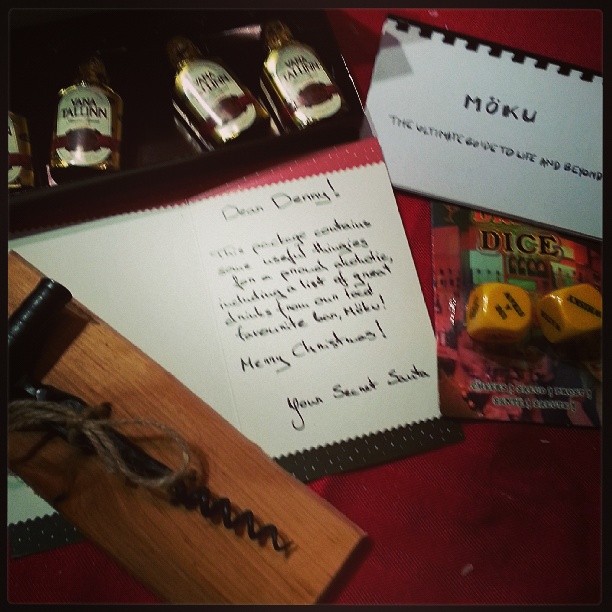 VANA
TALLINN
VANA
TALLINN
VANA
TALLINN
MÖKU
THE ULTIMATE GUIDE TO LIFE AND BEYOND
DICE
CHEERS! SALUD! PROST!
SANTÉ! SALUTE!
Dear Denny!
This package contains
some useful thingies
for a proud alcoholic,
including a list of great
drinks from our local
favourite bar, Möku!
Merry Christmas!
Your Secret Santa